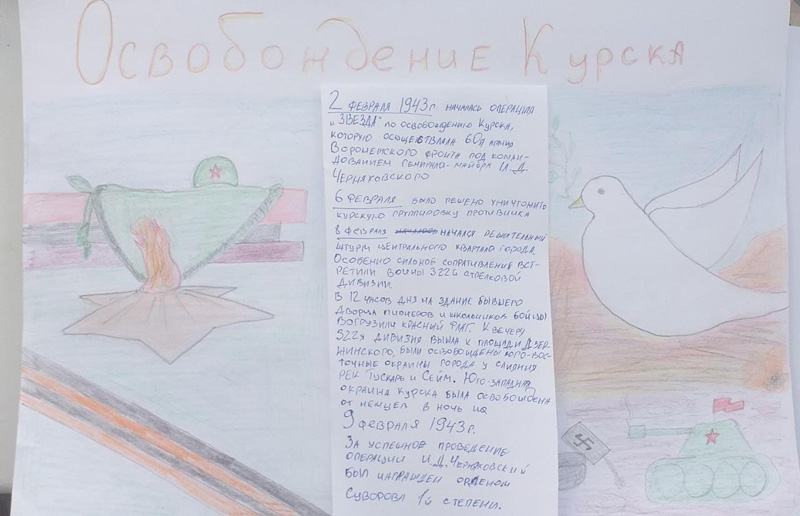 Освобождение Курска
2 февраля 1943г. началась операция
"Звезда" по освобождению Курска,
которую осуществляла 60я армия
Воронежского фронта под коман-
дованием генерала-майора И.Д.
Черняховского
6 февраля было решено уничтожить
курскую группировку противника
8 февраля начался решительный
штурм центрального квартала города.
Особенно сильное сопративление вст-
ретили воины 322й стрелковой
дивизии.
В 12 часов дня на здание бывшего
Дворца пионеров и школьников бойцы
вогрузили красный флаг. К вечеру
322я дивизия вышла к площади Дзер-
жинского, были освобождены юго-вос-
точные окраины города у слияния
рек Тускарь и Сейм. Юго-западная
окраина Курска была освобождена
от немцев в ночь на
9 февраля 1943г.
За успешное проведение
операции И.Д.Черняховский
был награжден орденом
Суворова 1й степени.